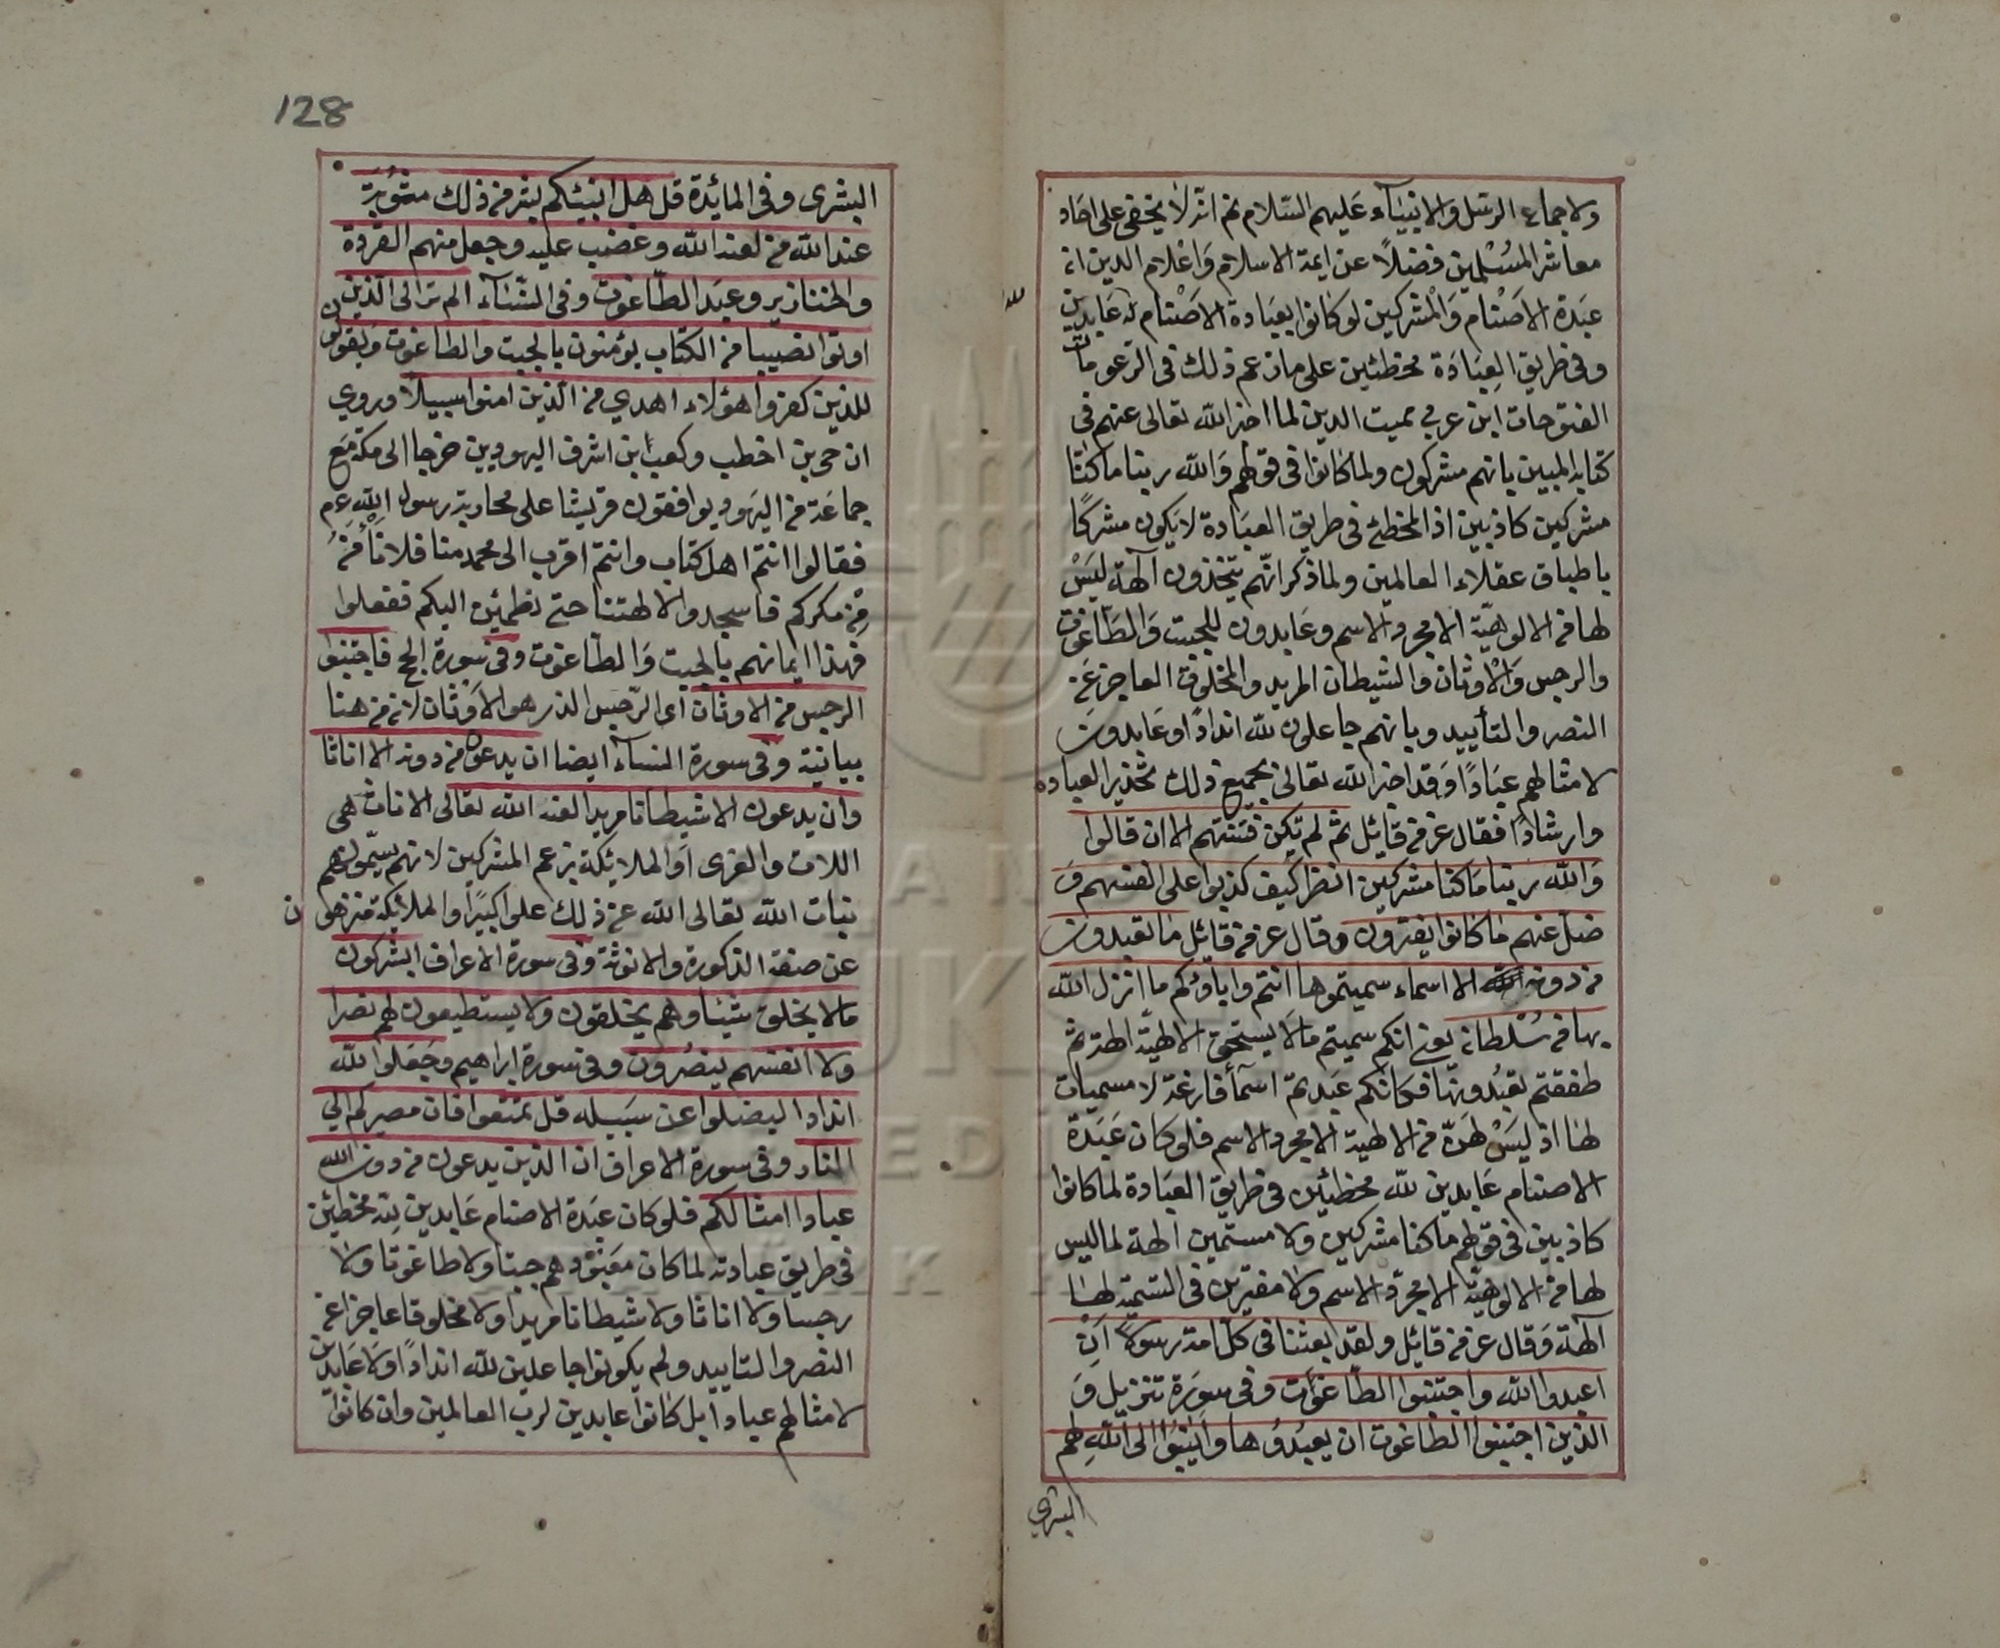 ولاجماع الرسل والانبياء عليهم السلام ثم انه لا يخفى على احاد
معاشر المسلمين فضلاً عن ايمة الاسلام واعلام الدين ان
عبدة الاصنام والمشركين لو كانوا بعبادة الاصنام لله عابدين
وفي طريق العبادة مخطئين على ما زعم ذلك في الفتوحات
ابن عربي مميت الدين لما اخبر الله تعالى عنهم في
كتابه المبين بانهم مشركون ولما كانوا في قولهم والله ربنا ما كنا
مشركين كاذبين اذ المخطئ في طريق العبادة لا يكون مشركا
باطباق عقلاء العالمين ولما ذكر انهم يتخذون آلهة ليس
لها من الالوهية الا مجرد الاسم وعابدون للجبت والطاغوت
والرجس والاوثان والشيطان المريد والمخلوق العاجز عن
النصر والتأييد وبانهم جاعلون لله اندادًا وعابدون
لامثالهم عبادًا وقد اخبر الله تعالى بجميع ذلك تحذير العباده
وارشادًا فقال عز من قائل ثم لم تكن فتنتهم الا ان قالوا
والله ربنا ما كنا مشركين انظر كيف كذبوا على انفسهم و
ضل عنهم ما كانوا يفترون وقال عز من قائل ما تعبدون
من دونه الا اسماء سميتموها انتم واباؤكم ما انزل الله
بها من سلطان يعني انكم سميتم ما لا يستحق الالهية الهة ثم
طفقتم تعبدونها فكانكم عبدتم اسمآء فارغة لا مسميات
لها اذ ليس لهن من الالهية الا مجرد الاسم فلو كان عبدة
الاصنام عابدين لله مخطئين في طريق العبادة لما كانوا
كاذبين في قولهم ما كنا مشركين ولا مسمين الهة لما ليس
لها من الالوهية الا مجرد الاسم ولا مفترين في التسمية لها
آلهة وقال عز من قائل ولقد بعثنا في كل امة رسولاً ان
اعبدوا الله واجتنبوا الطاغوت وفي سورة تنزيل و
الذين اجتنبوا الطاغوت ان يعبدوها وانابوا الى الله لهم
البشرى
128
البشرى وفي المائدة قل هل انبئكم بشر من ذلك مثوبة
عند الله من لعنه الله وغضب عليه وجعل منهم القردة
والخنازير وعبد الطاغوت وفي النسآء الم تر الى الذين
اوتوا نصيبا من الكتاب يؤمنون بالجبت والطاغوت ويقولون
للذين كفروا هؤلاء اهدي من الذين امنوا سبيلا وروي
ان حي بن اخطب وكعب ابن اشرف اليهوديين خرجا الى مكة مع
جماعة من اليهود يوافقون قريشا على محاربة رسول الله عم
فقالوا انتم اهل كتاب وانتم اقرب الى محمد منا فلا نأمن
من مكركم فاسجدوا لالهتنا حتى نطمئن اليكم ففعلوا
فهذا ايمانهم بالجبت والطاغوت وفي سورة الحج فاجتنبوا
الرجس من الاوثان اى الرجس الذي هو الاوثان لان من هنا
بيانية وفي سورة النسآء ايضا ان يدعون من دونه الا اناثا
وان يدعون الا شيطانا مريدا لعنه الله تعالى الاناث هي
اللات والعزى او الملائكة بزعم المشركين لانهم يسمونهم
بنات الله تعالى الله عن ذلك علوا كبيرًا والملائكة منزهون
عن صفة الذكورة والانوثة وفي سورة الاعراف ايشركون
مالا يخلق شيئا وهم يخلقون ولا يستطيعون لهم نصرا
ولا انفسهم ينصرون وفي سورة ابراهيم وجعلوا لله
اندادا ليضلوا عن سبيله قل تمتعوا فان مصيركم الي
النار وفي سورة الاعراف ان الذين يدعون من دون الله
عبادا امثالكم فلو كان عبدة الاصنام عابدين لله مخطئين
في طريق عبادته لما كان معبودهم جبتا ولا طاغوتا ولا
رجسا ولا اناثا ولا شيطانا مريدا ولا مخلوقا عاجزا عن
النصر والتاييد ولم يكونوا جاعلين لله اندادًا ولا عابدين
لامثالهم عبادا بل كانوا عابدين لرب العالمين وان كانوا